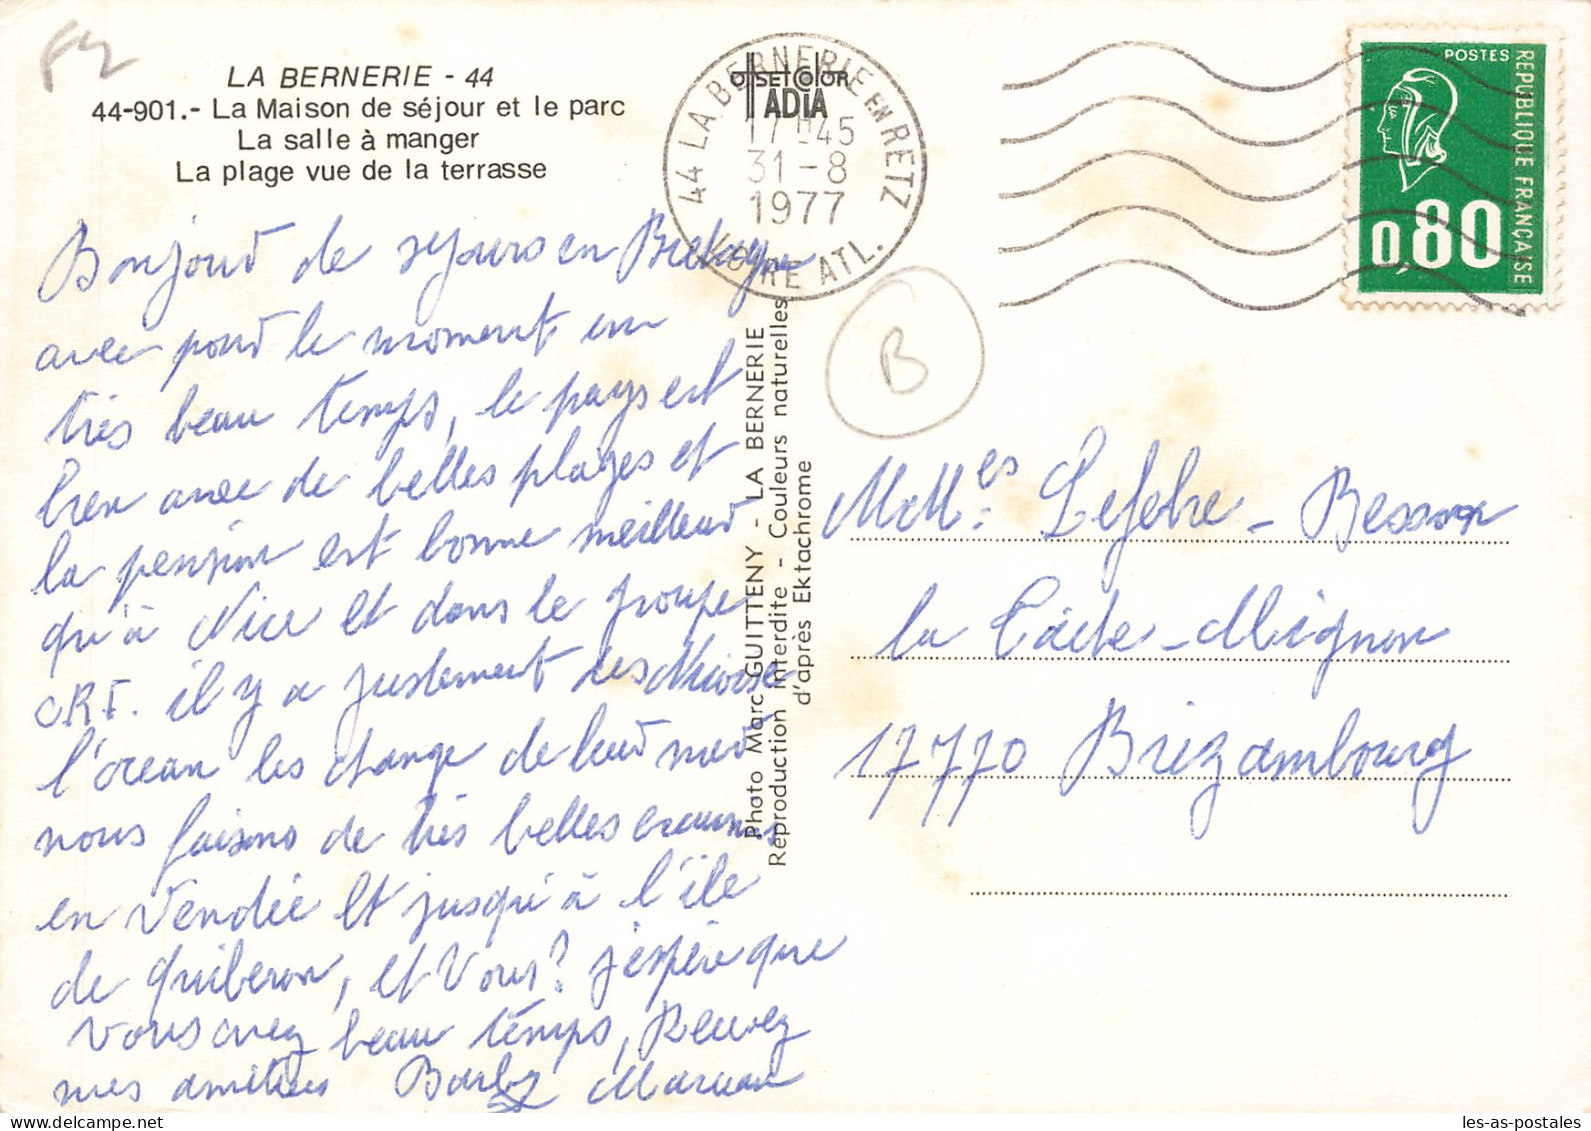 LA BERNERIE - 44
44-901.- La Maison de séjour et le parc
La salle à manger
La plage vue de la terrasse
OFFSETCOLOR
ADIA
44 LA BERNERIE EN RETZ
17H45
31-8
1977
LOIRE ATL.
POSTES
REPUBLIQUE FRANÇAISE
0,80
B
Bonjour de séjours en Bretagne
avec pour le moment un
très beau temps, le pays est
bien avec de belles plages et
la pension est bonne meilleur
qu'à Nice et dans le groupe
CRF. il y a justement des Niçoise
l'ocean les change de leur mer
nous faisons de très belles
en Vendée et jusqu'à l'ile
de Quiberon, et Vous? j'espère que
vous avez beau temps, Recevez
mes amitiés
Photo Marc GUITTENY - LA BERNERIE
Reproduction Interdite - Couleurs naturelles
d'après Ektachrome
Lefebre -
la
17770 Brizambourg
les-as-postales